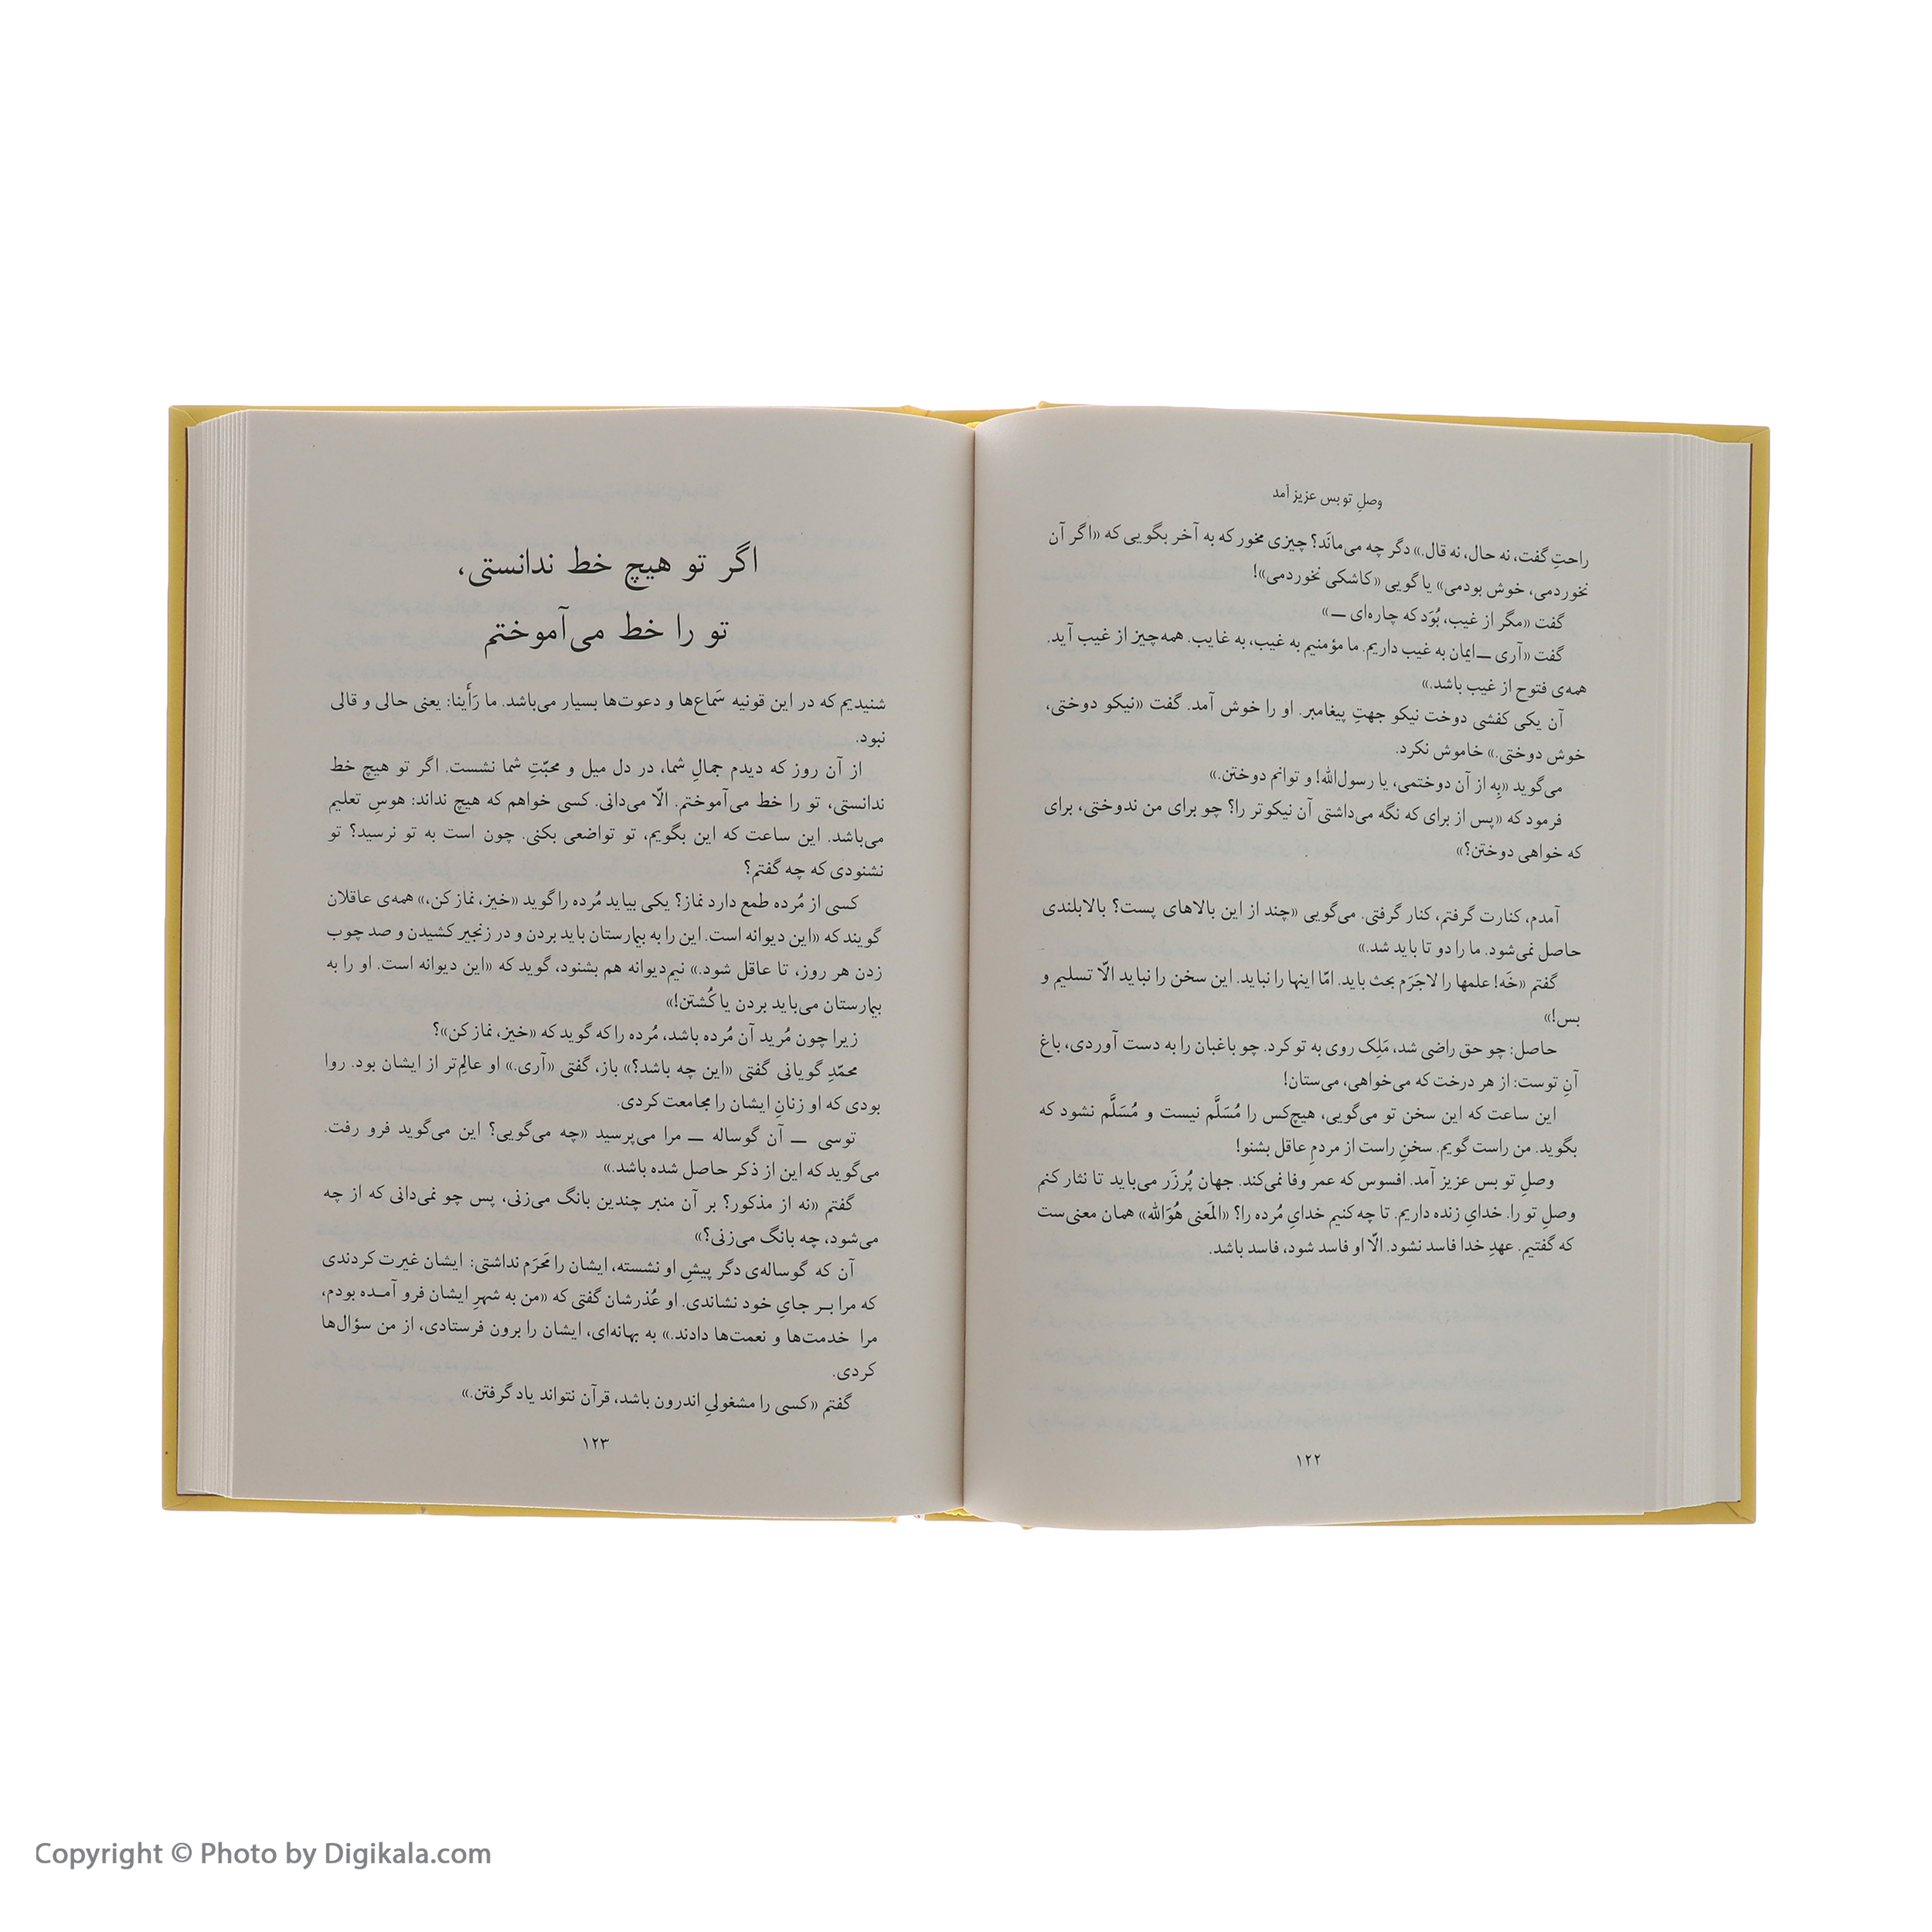 وصلِ تو بس عزیز آمد
راحتِ گفت، نه حال، نه قال.» دگر چه می‌ماند؟ چیزی مخور که به آخر بگویی که «اگر آن
نخوردمی، خوش بودمی» یا گویی «کاشکی نخوردمی»!
گفت «مگر از غیب، بُوَد که چاره‌ای ــ»
گفت «آری ــ ایمان به غیب داریم. ما مؤمنیم به غیب، به غایب. همه‌چیز از غیب آید.
همه‌ی فتوح از غیب باشد.»
آن یکی کفشی دوخت نیکو جهتِ پیغامبر. او را خوش آمد. گفت «نیکو دوختی،
خوش دوختی.» خاموش نکرد.
می‌گوید «بِه از آن دوختمی، یا رسول‌الله! و توانم دوختن.»
فرمود که «پس از برای که نگه می‌داشتی آن نیکوتر را؟ چو برای من ندوختی، برای
که خواهی دوختن؟»
آمدم، کنارت گرفتم، کنار گرفتی. می‌گویی «چند از این بالاهای پست؟ بالابلندی
حاصل نمی‌شود. ما را دو تا باید شد.»
گفتم «خَه! علمها را لاجَرَم بحث باید. امّا اینها را نباید. این سخن را نباید الّا تسلیم و
بس!»
حاصل: چو حق راضی شد، مَلِک روی به تو کرد. چو باغبان را به دست آوردی، باغ
آنِ توست: از هر درخت که می‌خواهی، می‌ستان!
این ساعت که این سخن تو می‌گویی، هیچ‌کس را مُسَلَّم نیست و مُسَلَّم نشود که
بگوید. من راست گویم. سخنِ راست از مردمِ عاقل بشنو!
وصلِ تو بس عزیز آمد. افسوس که عمر وفا نمی‌کند. جهان پُرزَر می‌باید تا نثار کنم
وصلِ تو را. خدایِ زنده داریم. تا چه کنیم خدایِ مُرده را؟ «المَعنی هُوَالله» همان معنی‌ست
که گفتیم. عهدِ خدا فاسد نشود. الّا او فاسد شود، فاسد باشد.
۱۲۲
اگر تو هیچ خط ندانستی،
تو را خط می‌آموختم
شنیدیم که در این قونیه سَماع‌ها و دعوت‌ها بسیار می‌باشد. ما رَأَینا: یعنی حالی و قالی
نبود.
از آن روز که دیدم جمالِ شما، در دل میل و محبّتِ شما نشست. اگر تو هیچ خط
ندانستی، تو را خط می‌آموختم. الّا می‌دانی. کسی خواهم که هیچ نداند: هوسِ تعلیم
می‌باشد. این ساعت که این بگویم، تو تواضعی بکنی. چون است به تو نرسید؟ تو
نشنودی که چه گفتم؟
کسی از مُرده طمع دارد نماز؟ یکی بیاید مُرده را گوید «خیز، نماز کن،» همه‌ی عاقلان
گویند که «این دیوانه است. این را به بیمارستان باید بردن و در زنجیر کشیدن و صد چوب
زدن هر روز، تا عاقل شود.» نیم‌دیوانه هم بشنود، گوید که «این دیوانه است. او را به
بیمارستان می‌باید بردن یا کُشتن!»
زیرا چون مُرید آن مُرده باشد، مُرده را که گوید که «خیز، نماز کن»؟
محمّدِ گویانی گفتی «این چه باشد؟» باز، گفتی «آری.» او عالِم‌تر از ایشان بود. روا
بودی که او زنانِ ایشان را مجامعت کردی.
توسی ــ آن گوساله ــ مرا می‌پرسید «چه می‌گویی؟ این می‌گوید فرو رفت.
می‌گوید که این از ذکر حاصل شده باشد.»
گفتم «نه از مذکور؟ بر آن منبر چندین بانگ می‌زنی، پس چو نمی‌دانی که از چه
می‌شود، چه بانگ می‌زنی؟»
آن که گوساله‌ی دگر پیشِ او نشسته، ایشان را مَحرَم نداشتی: ایشان غیرت کردندی
که مرا بـر جایِ خود نشاندی. او عُذرشان گفتی که «من به شهرِ ایشان فرو آمـده بودم،
مرا خدمت‌ها و نعمت‌ها دادند.» به بهانه‌ای، ایشان را برون فرستادی، از من سؤال‌ها
کردی.
گفتم «کسی را مشغولیِ اندرون باشد، قرآن نتواند یاد گرفتن.»
۱۲۳
Copyright © Photo by Digikala.com